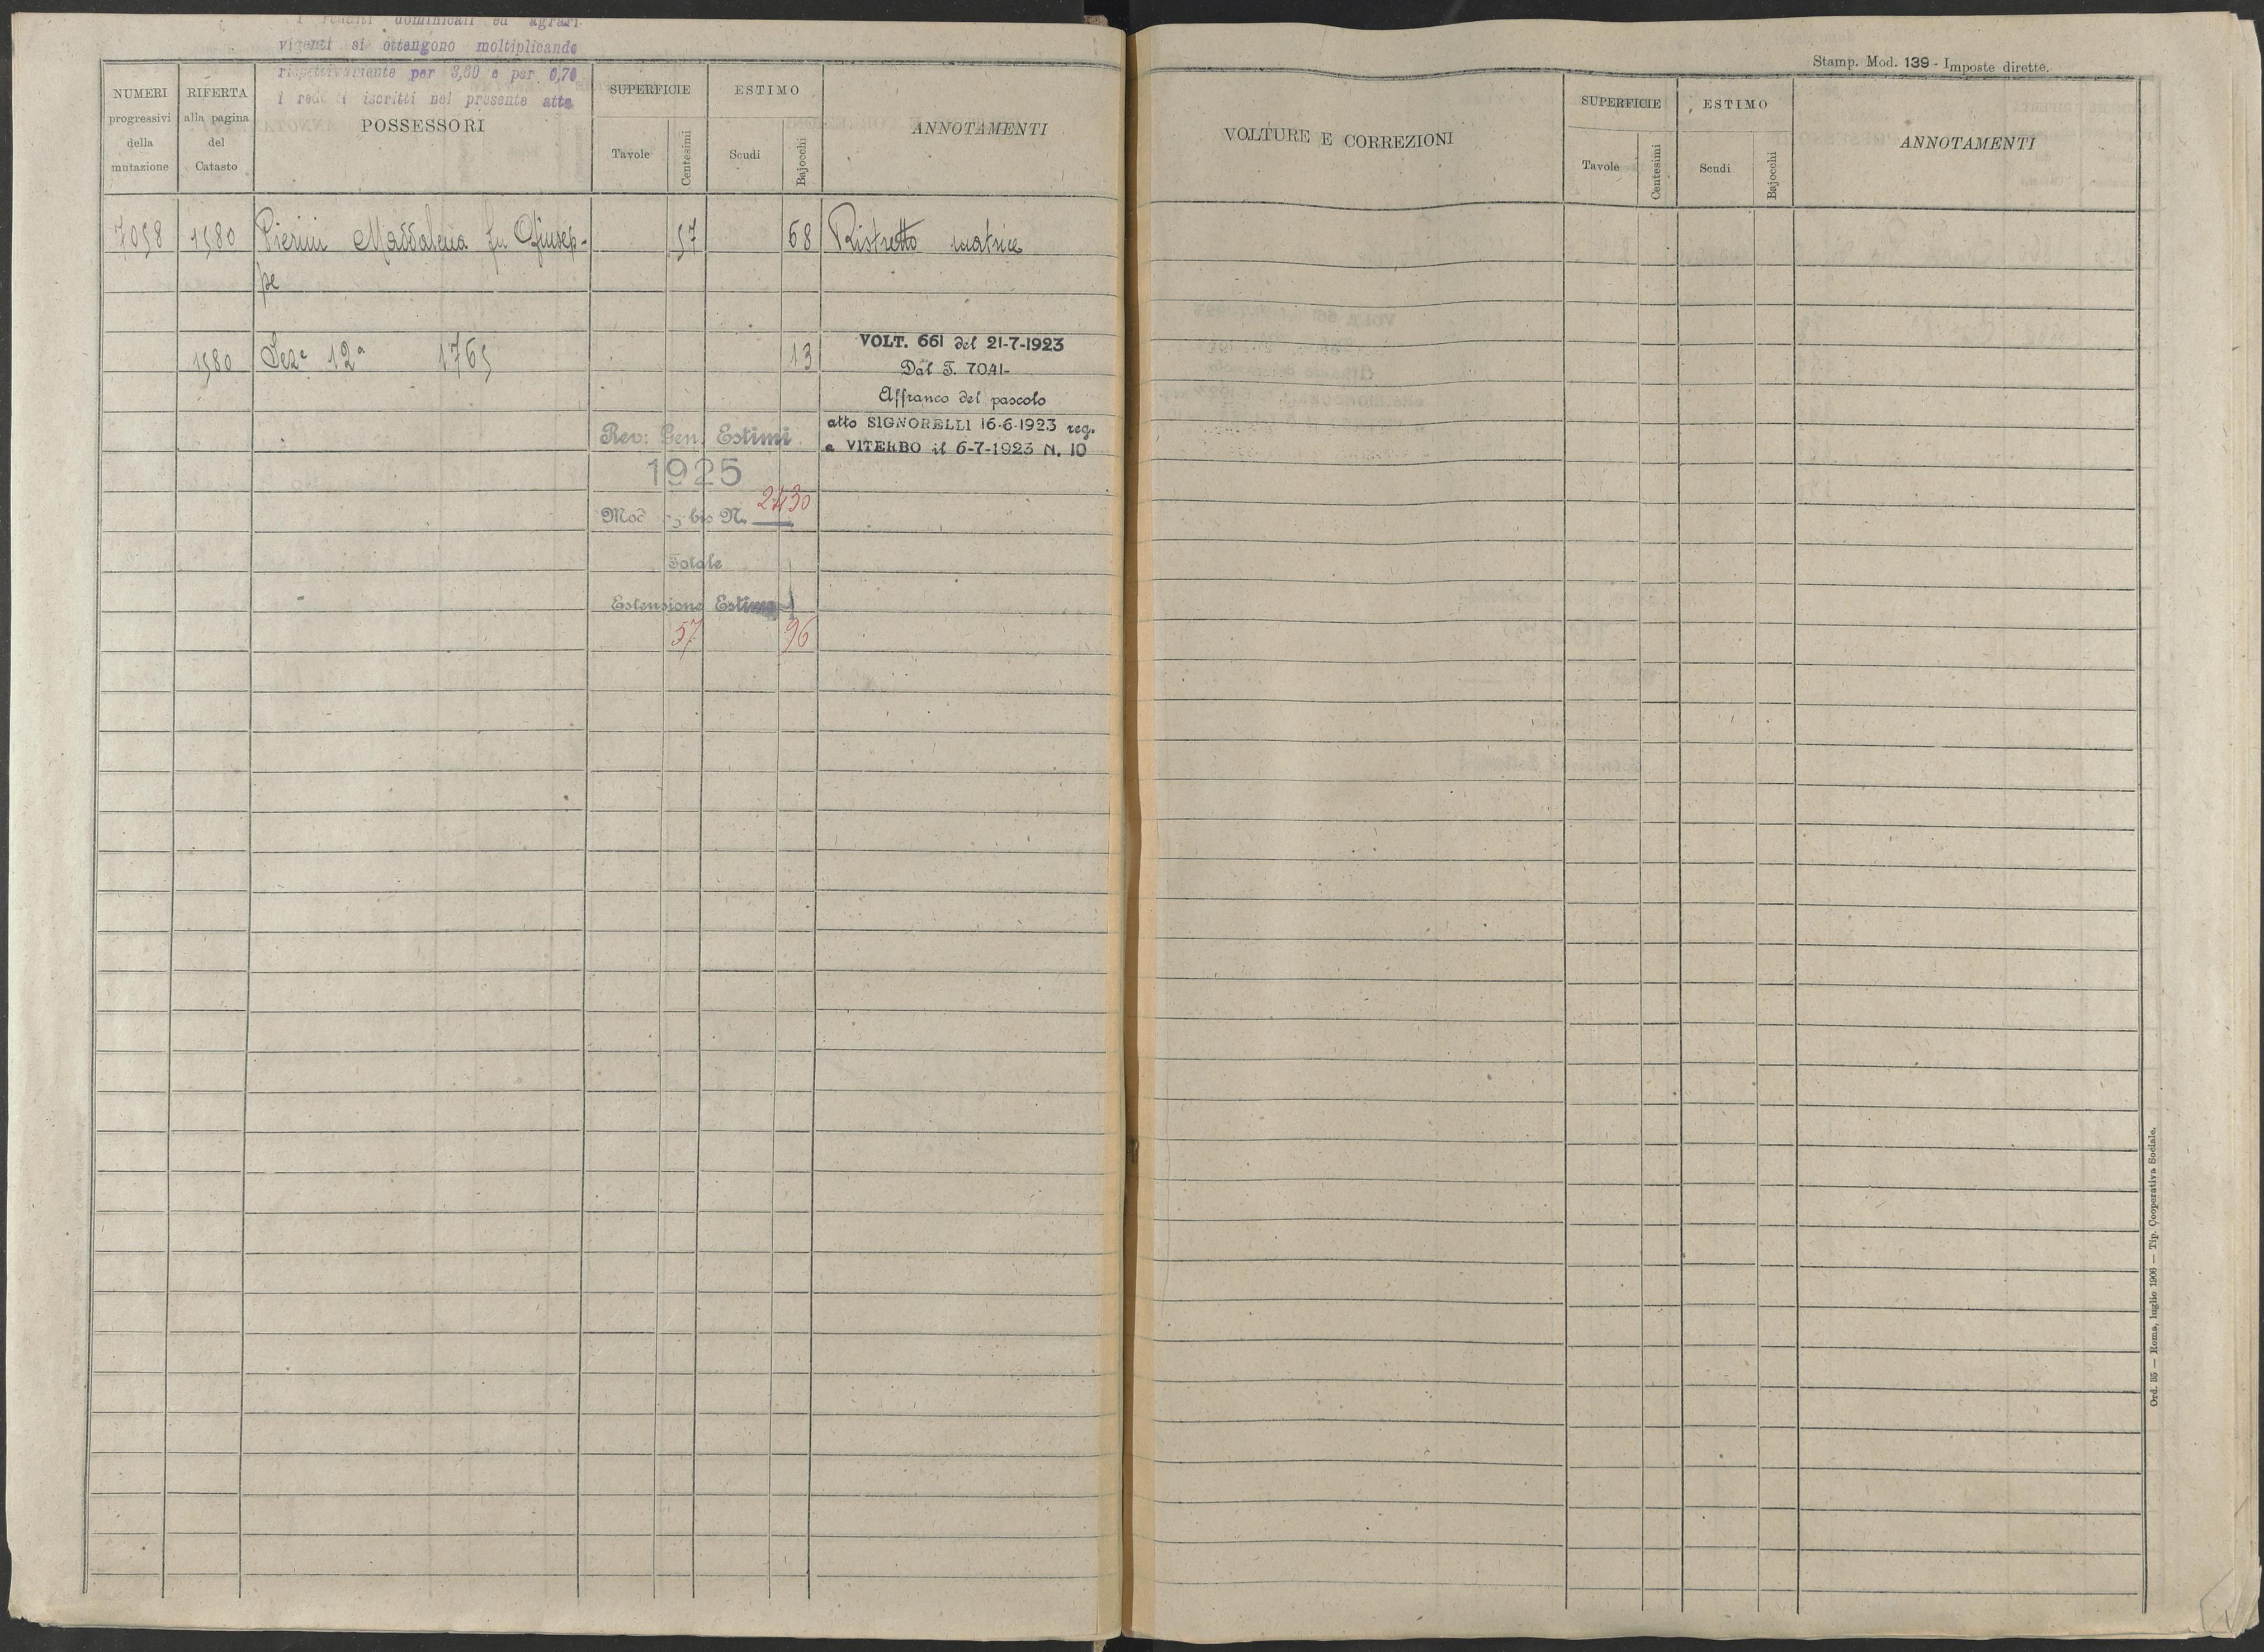 i redditi dominicali ed agrari
vigenti si ottengono moltiplicando
rispettivamente per 3,60 e per 0,70
i redditi iscritti nel presente atto
NUMERI
progressivi
della
mutazione
RIFERTA
alla pagina
del
Catasto
POSSESSORI
SUPERFICIE
Tavole
Centesimi
ESTIMO
Scudi
Bajocchi
ANNOTAMENTI
7058 1580 Pierini Maddalena fu Giusep- 57 68 Ristretto matrice
pe
1580 Seze 12a 1765 13
VOLT. 661 del 21-7-1923
Dal T. 7041-
Affranco del pascolo
atto SIGNORELLI 16-6-1923 reg.
a VITERBO il 6-7-1923 N. 10
Rev: Gen. Estimi
1925
Mod bis N. 2430
Totale
Estensione Estimo
57 96
Stamp. Mod. 139 - Imposte dirette.
VOLTURE E CORREZIONI
SUPERFICIE
Tavole
Centesimi
ESTIMO
Scudi
Bajocchi
ANNOTAMENTI
Ord. 35 — Roma, luglio 1906 — Tip. Cooperativa Sociale.